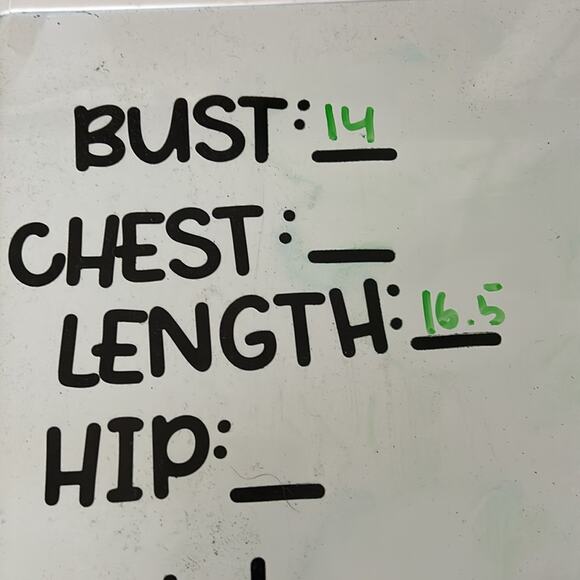 BUST: 14
CHEST: __
LENGTH: 16.5
HIP: __